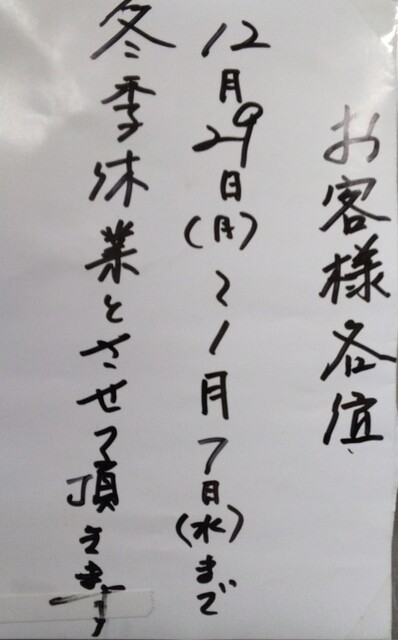 お客様各位
12月29日(月)〜1月7日(水)まで
冬季休業とさせて頂きます